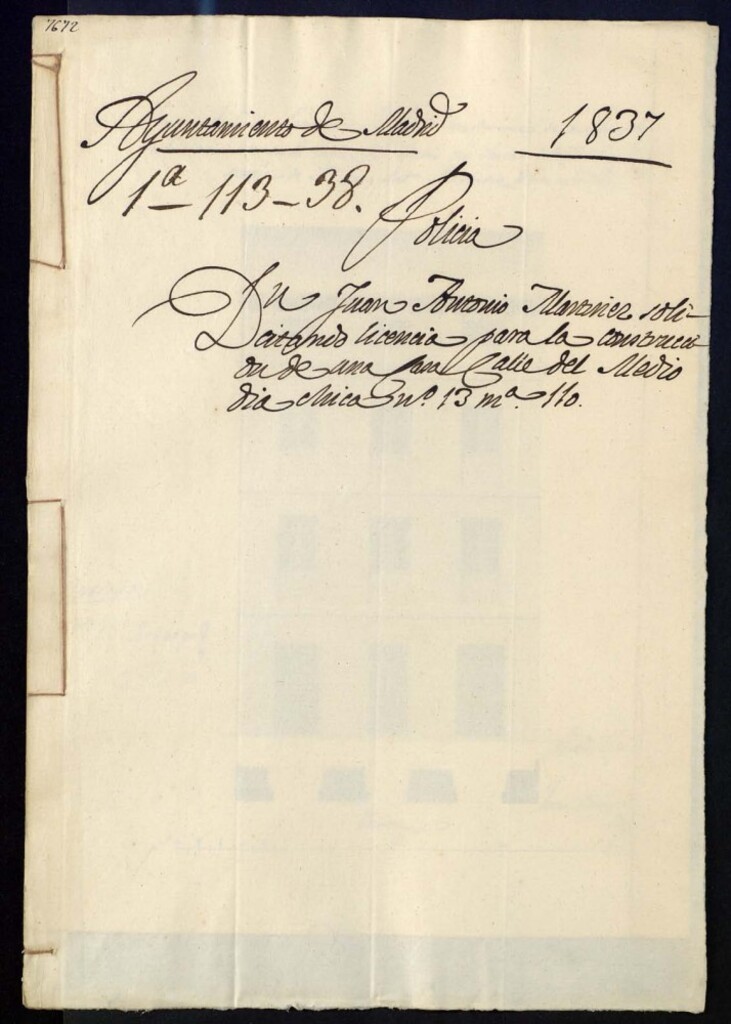 7672
Ayuntamiento de Madrid 1837
1ª - 113 - 38.
Policia
Dn Juan Antonio Martinez soli-
citando licencia para la construcci
on de una Casa Calle del Medio
dia chica nº. 13 mª. 110.